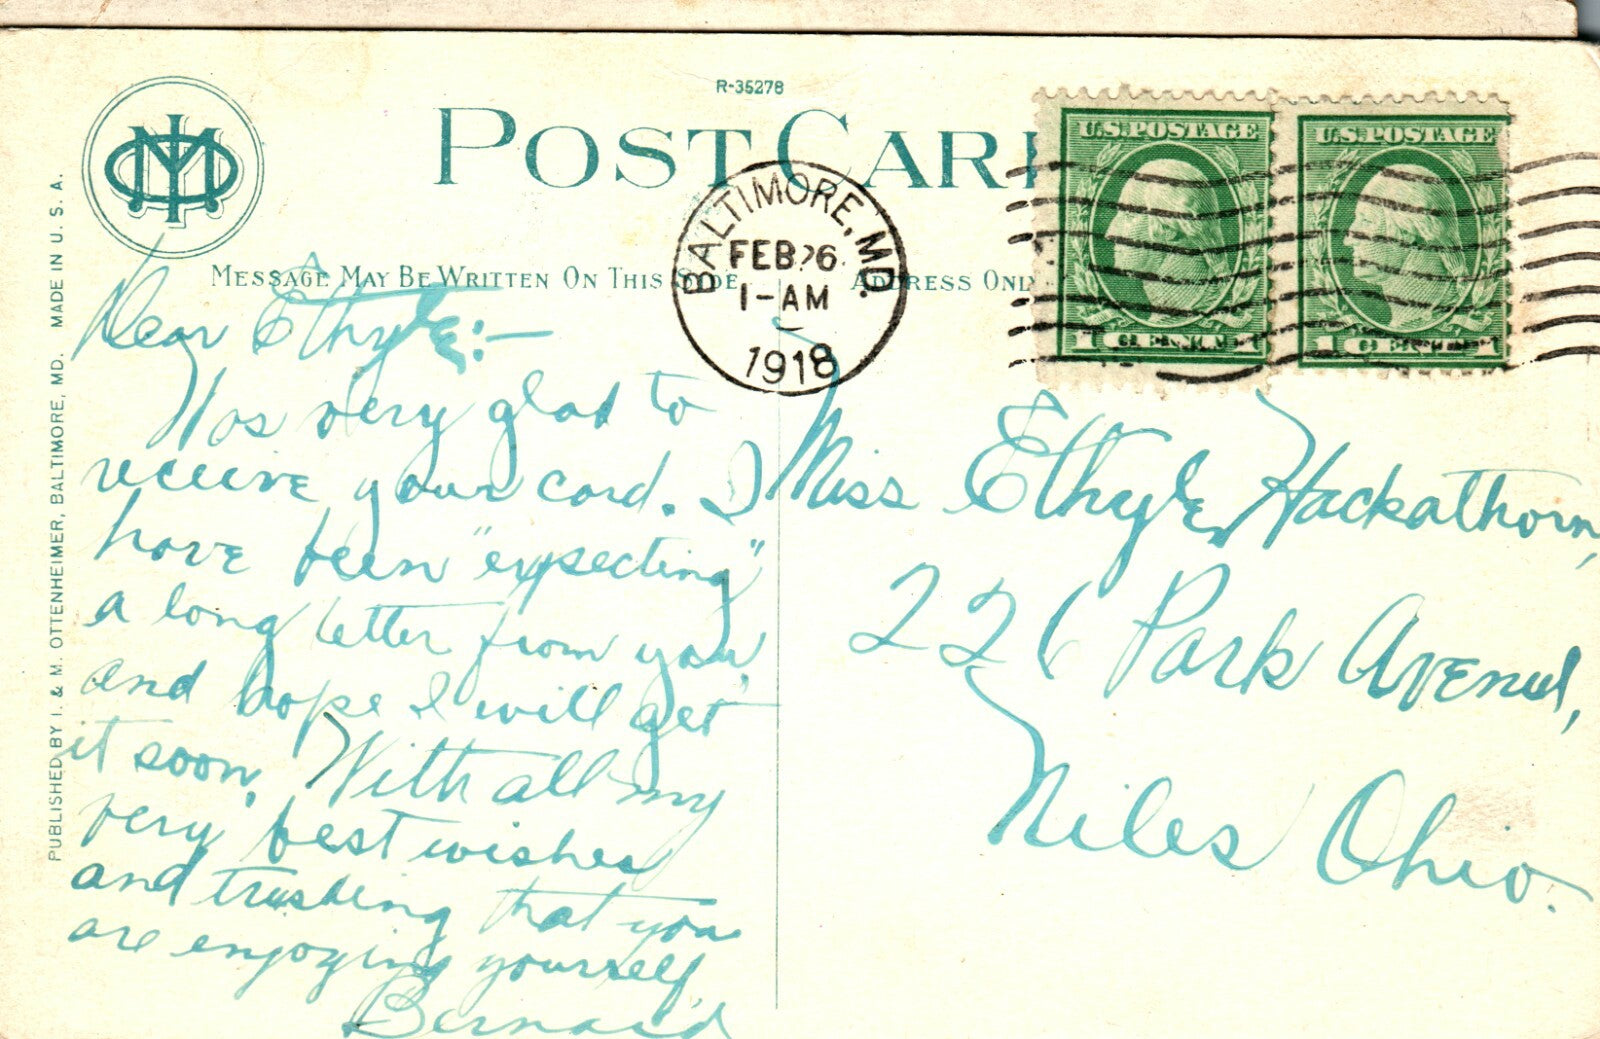 R-35278
POST CARD
MESSAGE MAY BE WRITTEN ON THIS SIDE
ADDRESS ONLY
PUBLISHED BY I. & M. OTTENHEIMER, BALTIMORE, MD. MADE IN U. S. A.
BALTIMORE, MD.
FEB 26
1-AM
1918
U.S. POSTAGE
1 CENT 1
U.S. POSTAGE
1 CENT 1
Dear Ethyle:-
Was very glad to
receive your card. I
have been "expecting"
a long letter from you,
and hope I will get
it soon. With all my
very best wishes
and trusting that you
are enjoying yourself,
Bernard
Miss Ethyle Hackathorn,
226 Park Avenue,
Niles Ohio.